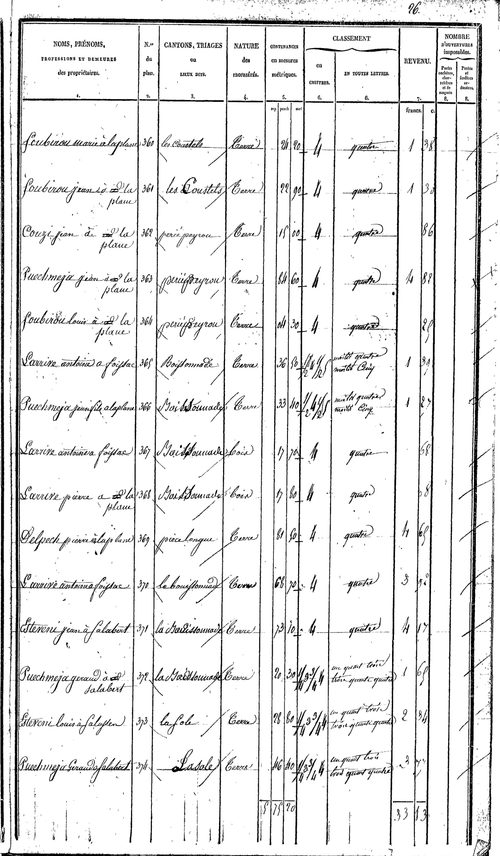 26.
NOMS, PRÉNOMS,
PROFESSIONS ET DEMEURES
des propriétaires.
N.os
du
plan.
CANTONS, TRIAGES
ou
LIEUX DITS.
NATURE
des
CONTENANCES
en mesures
métriques.
CLASSEMENT
en
CHIFFRES.
EN TOUTES LETTRES.
REVENU.
NOMBRE
D'OUVERTURES
imposables.
1. 2. 3. 4. 5. 6. 6. 7. 8. 8.
francs. c.
Loubirou marie à laplane 360 les Coustels Terre 24 20 4 quatre 1 38
Loubirou jean à la plane 361 les Coustels Terre 22 90 4 quatre 1 30
Couzi jean à la plane 362 Terre 15 00 4 quatre 86
Puechmeja jean à la plane 363 Terre 84 60 4 quatre 4 82
Loubirou louis à la plane 364 Terre 04 30 4 quatre 25
Larrive antoine a foissac 365 Boissonnade Terre 36 50 1/2 4 1/2 5 moitié quatre moitié Cinq 1 39
Puechmeja jean fils à laplane 366 Boissonnade Terre 33 40 1/2 4 1/2 5 moitié quatre moitié Cinq 1 27
Larrive antoine a foissac 367 Boissonnade bois 17 70 4 quatre 58
Larrive pierre a la plane 368 Boissonnade bois 17 80 4 quatre 58
Delpech pierre à laplane 369 piece longue Terre 81 50 4 quatre 4 65
Larrive antoine a foissac 370 la bouissonnade Terre 68 70 4 quatre 3 92
Esteveni jean à Salabert 371 la Boissonnade Terre 73 10 4 quatre 4 17
Puechmeja geraud à Salabert 372 la Boissonnade Terre 20 30 1/4 3 3/4 4 un quart trois trois quarts quatre 1 65
Esteveni louis à 373 la Sole Terre 28 80 1/4 3 3/4 4 un quart trois trois quarts quatre 2 34
Puechmeja Geraud a Salabert 374 La sole Terre 46 40 1/4 3 3/4 4 un quart trois trois quarts quatre 3 77
5 75 20 33 83